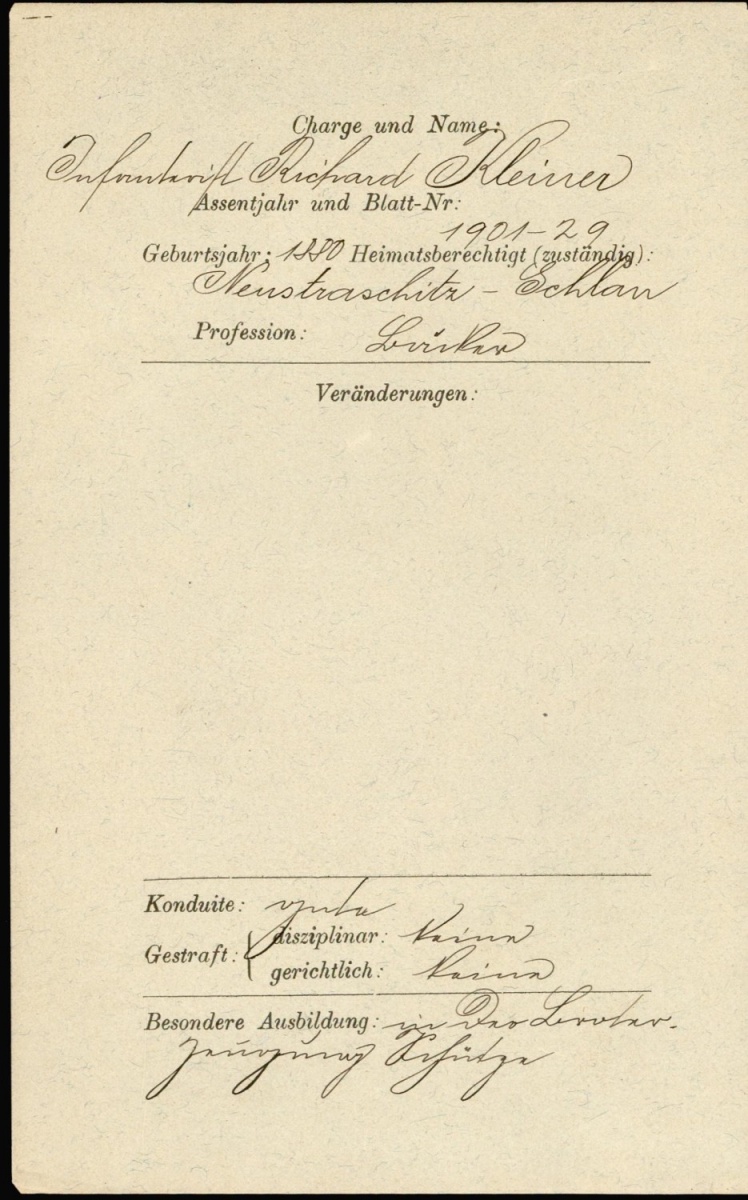 Charge und Name:
Infanterist Richard Kleiner
Assentjahr und Blatt-Nr:
1901-29
Geburtsjahr: 1880 Heimatsberechtigt (zuständig):
Neustraschitz - Schlan
Profession: Bäcker
Veränderungen:
Konduite: gute
Gestraft: { disziplinar: keine
gerichtlich: keine
Besondere Ausbildung: in der Broter-
zeugung Schütze